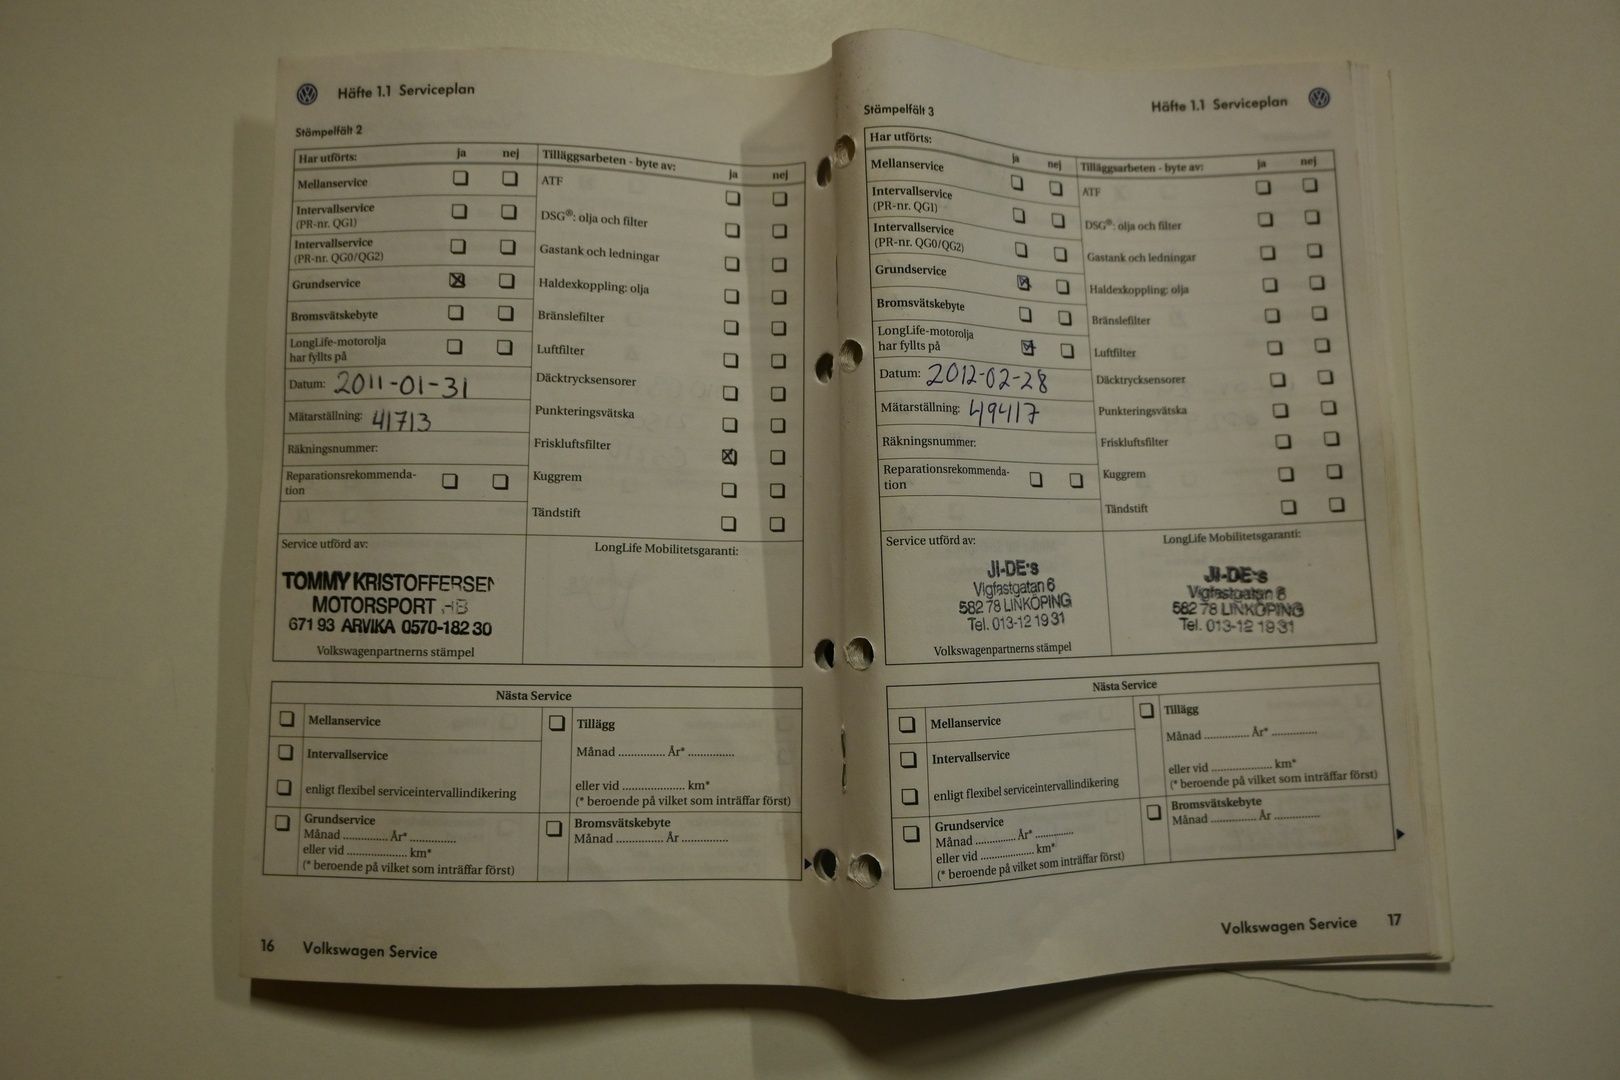 Häfte 1.1 Serviceplan
Stämpelfält 2
Har utförts: ja nej
Mellanservice
Intervallservice
(PR-nr. QG1)
Intervallservice
(PR-nr. QG0/QG2)
Grundservice
Bromsvätskebyte
LongLife-motorolja
har fyllts på
Datum: 2011-01-31
Mätarställning: 41713
Räkningsnummer:
Reparationsrekommenda-
tion
Tilläggsarbeten - byte av: ja nej
ATF
DSG®: olja och filter
Gastank och ledningar
Haldexkoppling: olja
Bränslefilter
Luftfilter
Däcktrycksensorer
Punkteringsvätska
Friskluftsfilter
Kuggrem
Tändstift
Service utförd av:
TOMMY KRISTOFFERSEN
MOTORSPORT HB
671 93 ARVIKA 0570-182 30
Volkswagenpartnerns stämpel
LongLife Mobilitetsgaranti:
Nästa Service
Mellanservice
Intervallservice
enligt flexibel serviceintervallindikering
Grundservice
Månad .............. År* ..............
eller vid ................... km*
(* beroende på vilket som inträffar först)
Tillägg
Månad .............. År* ..............
eller vid ................... km*
(* beroende på vilket som inträffar först)
Bromsvätskebyte
Månad .............. År ..............
16 Volkswagen Service
Häfte 1.1 Serviceplan
Stämpelfält 3
Har utförts: ja nej
Mellanservice
Intervallservice
(PR-nr. QG1)
Intervallservice
(PR-nr. QG0/QG2)
Grundservice
Bromsvätskebyte
LongLife-motorolja
har fyllts på
Datum: 2012-02-28
Mätarställning: 49417
Räkningsnummer:
Reparationsrekommenda-
tion
Tilläggsarbeten - byte av: ja nej
ATF
DSG®: olja och filter
Gastank och ledningar
Haldexkoppling: olja
Bränslefilter
Luftfilter
Däcktrycksensorer
Punkteringsvätska
Friskluftsfilter
Kuggrem
Tändstift
Service utförd av:
JI-DE's
Vigfastgatan 6
582 78 LINKÖPING
Tel. 013-12 19 31
Volkswagenpartnerns stämpel
LongLife Mobilitetsgaranti:
JI-DE's
Vigfastgatan 6
582 78 LINKÖPING
Tel. 013-12 19 31
Nästa Service
Mellanservice
Intervallservice
enligt flexibel serviceintervallindikering
Grundservice
Månad .............. År* ..............
eller vid ................... km*
(* beroende på vilket som inträffar först)
Tillägg
Månad .............. År* ..............
eller vid ................... km*
(* beroende på vilket som inträffar först)
Bromsvätskebyte
Månad .............. År ..............
Volkswagen Service 17